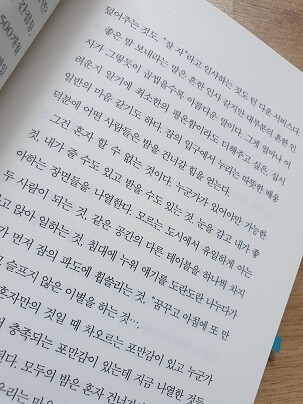 덮어주는 것도, "잘 자"라고 인사하는 것도 턴 다운 서비스다.
좋은 밤 보내라는 말은 흔한 인사 같지만 대부분의 흔한 인
사가 그렇듯이 곱씹을수록 아름다운 말이다. 그게 얼마나 어
려운지 알기에 최소한의 평온함이라도 다해주고 싶은, 심시
일반의 마음 같기도 하다. 잠의 입구에서 누리는 따뜻한 배웅
덕분에 어떤 사람들은 밤을 건너갈 힘을 얻는다.
그건 혼자 할 수 없는 것이다. 누군가가 있어야만 가능한
것. 내가 줄 수도 있고 받을 수도 있는 것. 눈을 감고 내가 좋
아하는 장면들을 나열한다. 모르는 도시에서 유일하게 아는
두 사람이 되는 것. 같은 공간의 다른 테이블을 하나씩 차지
고 앉아 일하는 것. 침대에 누워 얘기를 도란도란 나누다가
가 먼저 잠의 파도에 휩쓸리는 것. "꿈꾸고 아침에 또 만
고 슬프지 않은 이별을 하는 것….
혼자만의 것일 때 차오르는 포만감이 있고 누군가
충족되는 포만감이 있는데 지금 나열한 것들
다. 모두의 밤은 혼자 건너
500개